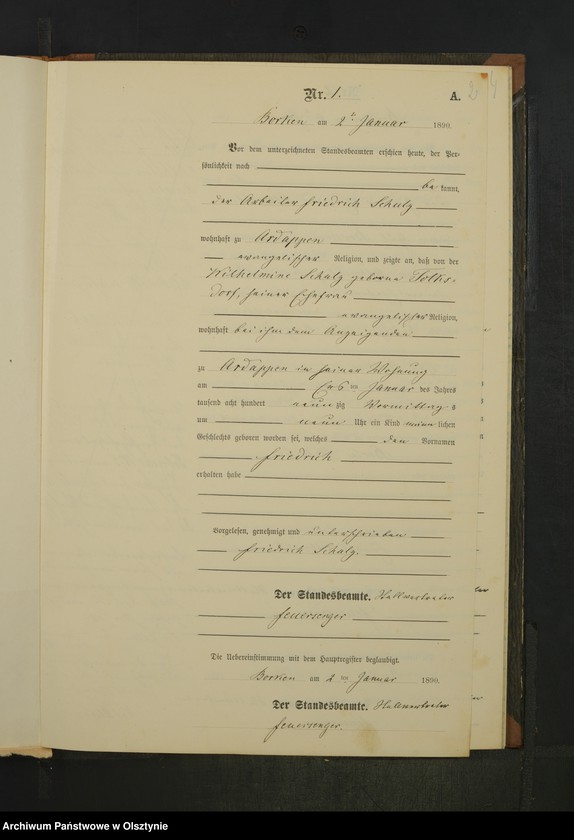 Nr. 1.
A.
2
Borken am 2ten Januar 1890.
Vor dem unterzeichneten Standesbeamten erschien heute, der Per-
sönlichkeit nach
be kannt,
der Arbeiter Friedrich Schulz
wohnhaft zu Ardappen
evangelischer Religion, und zeigte an, daß von der
Wilhelmine Schulz geborne
dorf, seiner Ehefrau
evangelischer Religion,
wohnhaft bei ihm dem Anzeigenden
zu Ardappen in seiner Wohnung
am ten Januar des Jahres
tausend acht hundert neunzig Vormittags
um neun Uhr ein Kind männlichen
Geschlechts geboren worden sei, welches den Vornamen
Friedrich
erhalten habe
Vorgelesen, genehmigt und unterschrieben
Friedrich Schulz.
Der Standesbeamte.
Feuersenger
Die Uebereinstimmung mit dem Hauptregister beglaubigt.
Borken am 2ten Januar 1890.
Der Standesbeamte.
Feuersenger.
Archiwum Państwowe w Olsztynie